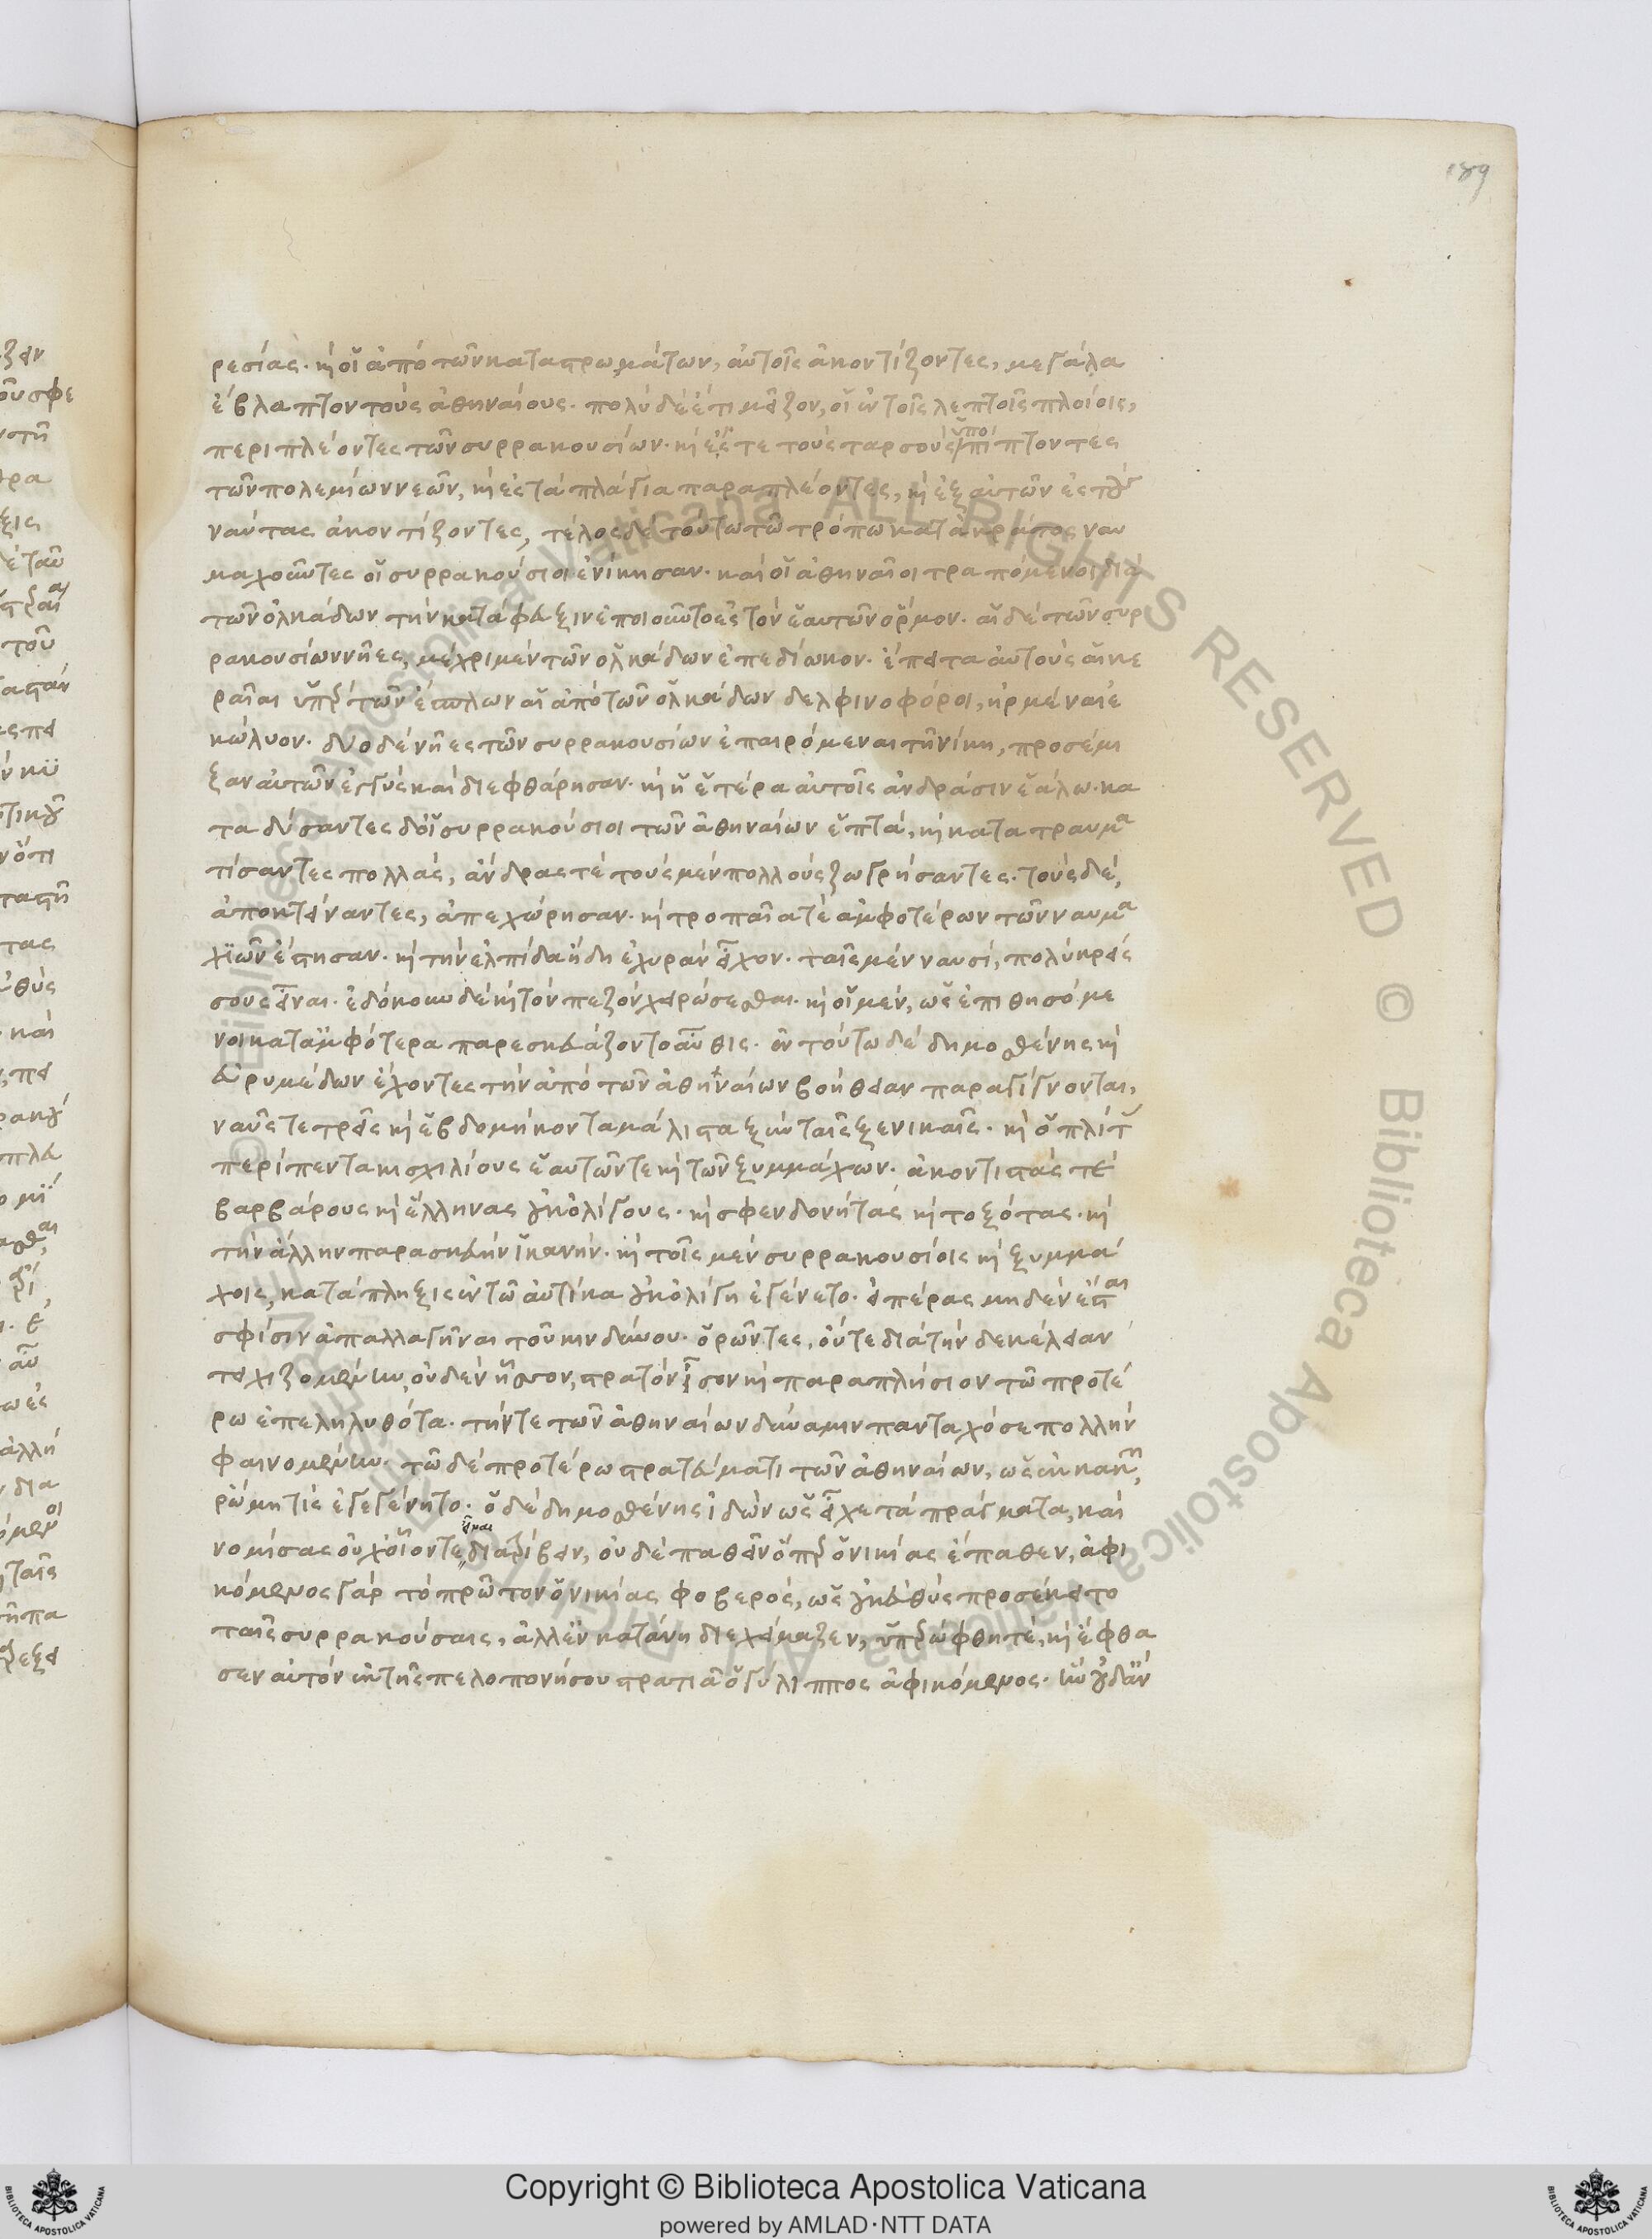 189
ρεσίας. κὶ οἵ ἀπὸ τῶν καταστρωμάτων, αὐτοῖς ἀκοντίζοντες, μεγάλα
ἔβλαπτον τοὺς ἀθηναίους. πολὺ δὲ ἔτι μεῖζον, οἵ ἐν τοῖς λεπτοῖς πλοίοις,
περιπλέοντες τῶν συρρακουσίων. κὶ ἔς τε τοὺς ταρσοὺς ὑποπίπτοντες
τῶν πολεμίων νεῶν, κὶ ἐς τὰ πλάγια παραπλέοντες, κὶ ἐξ αὐτῶν ἐς τοὺς
ναύτας ἀκοντίζοντες, τέλος δὲ τούτω τῶ τρόπω κατὰ κράτος ναυ
μαχοῦντες οἵ συρρακούσιοι ἐνίκησαν. καὶ οἵ ἀθηναῖοι τραπόμενοι διὰ
τῶν ὁλκάδων τὴν κατάφευξιν ἐποιοῦντο ἐς τὸν ἑαυτῶν ὅρμον. αἵ δὲ τῶν συρ
ρακουσίων νῆες, μέχρι μὲν τῶν ὁλκάδων ἐπεδίωκον. ἔπειτα αὐτοὺς αἵ κε
ραῖαι ὑπὲρ τῶν ἔσπλων αἵ ἀπὸ τῶν ὁλκάδων δελφινοφόροι, ἠρμέναι ἐ
κώλυον. δύο δὲ νῆες τῶν συρρακουσίων ἐπαιρόμεναι τῆ νίκη, προσέμι
ξαν αὐτῶν ἐγγὺς καὶ διεφθάρησαν. κὶ ἡ ἑτέρα αὐτοῖς ἀνδράσιν ἑάλω. κα
ταδύσαντες δ' οἵ συρρακούσιοι τῶν ἀθηναίων ἑπτά, κὶ κατατραυμα
τίσαντες πολλάς, ἄνδρας τὲ τοὺς μὲν πολλοὺς ζωγρήσαντες. τοὺς δέ,
ἀποκτείναντες, ἀπεχώρησαν. κὶ τροπαῖα τὲ ἀμφοτέρων τῶν ναυμα
χϊῶν ἔστησαν. κὶ τὴν ἐλπίδα ἤδη ἐχυρὰν εἶχον. ταῖς μὲν ναυσί, πολὺ κρεί
σους εἶναι. ἐδόκουν δὲ κὶ τὸν πεζὸν χειρώσεσθαι. κὶ οἵ μέν, ὡς ἐπιθησόμε
νοι κατ' ἀμφότερα παρεσκευάζοντο αὖθις. ἐν τούτω δὲ δημοσθένης κὶ
εὐρυμέδων ἔχοντες τὴν ἀπὸ τῶν ἀθηναίων βοήθειαν παραγίγνονται,
ναῦς τε τρεῖς κὶ ἑβδομήκοντα μάλιστα ξὺν ταῖς ξενικαῖς. κὶ ὁπλίτας
περὶ πεντακισχιλίους ἑαυτῶν τε κὶ τῶν ξυμμάχων. ἀκοντιστάς τὲ
βαρβάρους κὶ ἕλληνας οὐκ ὀλίγους. κὶ σφενδονήτας κὶ τοξότας. κὶ
τὴν ἄλλην παρασκευὴν ἱκανήν. κὶ τοῖς μὲν συρρακουσίοις κὶ ξυμμά
χοις, κατάπληξις ἐν τῶ αὐτίκα οὐκ ὀλίγη ἐγένετο. εἰ πέρας μηδὲν ἔσται
σφίσιν ἀπαλλαγῆναι τοῦ κινδύνου. ὁρῶντες, οὔτε διὰ τὴν δεκέλειαν
τειχιζομένην, οὐδὲν ἧσσον, στρατὸν ἴσον κὶ παραπλήσιον τῶ προτέ
ρω ἐπεληλυθότα. τήν τε τῶν ἀθηναίων δύναμιν πανταχόσε πολλὴν
φαινομένην. τῶ δὲ προτέρω στρατεύματι τῶν ἀθηναίων, ὡς ἐκ κακῶν,
ῥώμη τὶς ἐγεγένητο. ὁ δὲ δημοσθένης ἰδὼν ὡς εἶχε τὰ πράγματα, καὶ
νομίσας οὐχ' οἷόν τε εἶναι διατρίβειν, οὐδὲ παθεῖν ὅπερ ὁ νικίας ἔπαθεν, ἀφι
κόμενος γὰρ τὸ πρῶτον ὁ νικίας φοβερός, ὡς οὐκ εὐθὺς προσέκειτο
ταῖς συρρακούσαις, ἀλλ' ἐν κατάνη διεχείμαζεν, ὑπερώφθη τέ, κὶ ἔφθα
σεν αὐτὸν ἐκ τῆς πελοπονήσου στρατιᾶ ὁ γύλιππος ἀφικόμενος. ἣν οὐδ' ἂν
Copyright © Biblioteca Apostolica Vaticana
powered by AMLAD·NTT DATA